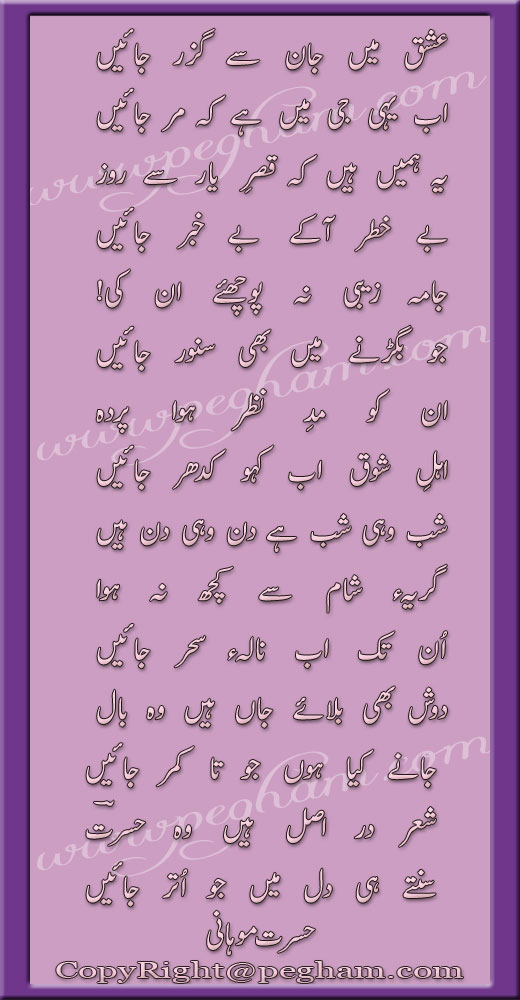 عشق میں جان سے گزر جائیں
اب یہی جی میں ہے کہ مر جائیں
یہ ہمیں ہیں کہ قصرِ یار سے روز
بے خطر آکے بے خبر جائیں
جامہ زیبی نہ پوچھئے ان کی!
جو بگڑنے میں بھی سنور جائیں
ان کو مدِ نظر ہوا پردہ
اہلِ شوق اب کہو کدھر جائیں
شب وہی شب ہے دن وہی دن ہیں
گریہء شام سے کچھ نہ ہوا
اُن تک اب نالہء سحر جائیں
دوش بھی بلائے جاں ہیں وہ بال
جانے کیا ہوں جو تا کمر جائیں
شعر در اصل ہیں وہ حسرتؔ
سنتے ہی دل میں جو اُتر جائیں
حسرت موہانی
CopyRight@pegham.com
www.pegham.com
www.pegham.com
www.pegham.com